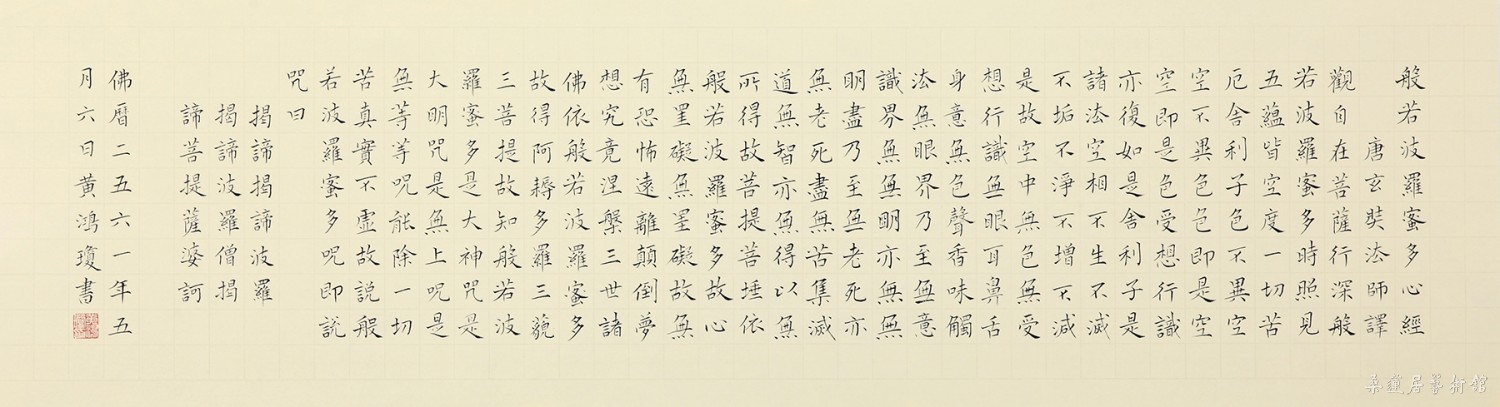 般若波羅蜜多心經
唐玄奘法師譯
觀自在菩薩行深般
若波羅蜜多時照見
五蘊皆空度一切苦
厄舍利子色不異空
空不異色色即是空
空即是色受想行識
亦復如是舍利子是
諸法空相不生不滅
不垢不淨不增不減
是故空中無色無受
想行識無眼耳鼻舌
身意無色聲香味觸
法無眼界乃至無意
識界無無明亦無無
明盡乃至無老死亦
無老死盡無苦集滅
道無智亦無得以無
所得故菩提菩埵依
般若波羅蜜多故心
無罣礙無罣礙故無
有恐怖遠離顛倒夢
想究竟涅槃三世諸
佛依般若波羅蜜多
故得阿耨多羅三藐
三菩提故知般若波
羅蜜多是大神咒是
大明咒是無上咒是
無等等咒能除一切
苦真實不虛故說般
若波羅蜜多咒即說
咒曰
揭諦揭諦波羅
揭諦波羅僧揭
諦菩提薩婆訶
佛曆二五六一年五
月六日黃鴻瓊書
桑蓮居藝術館